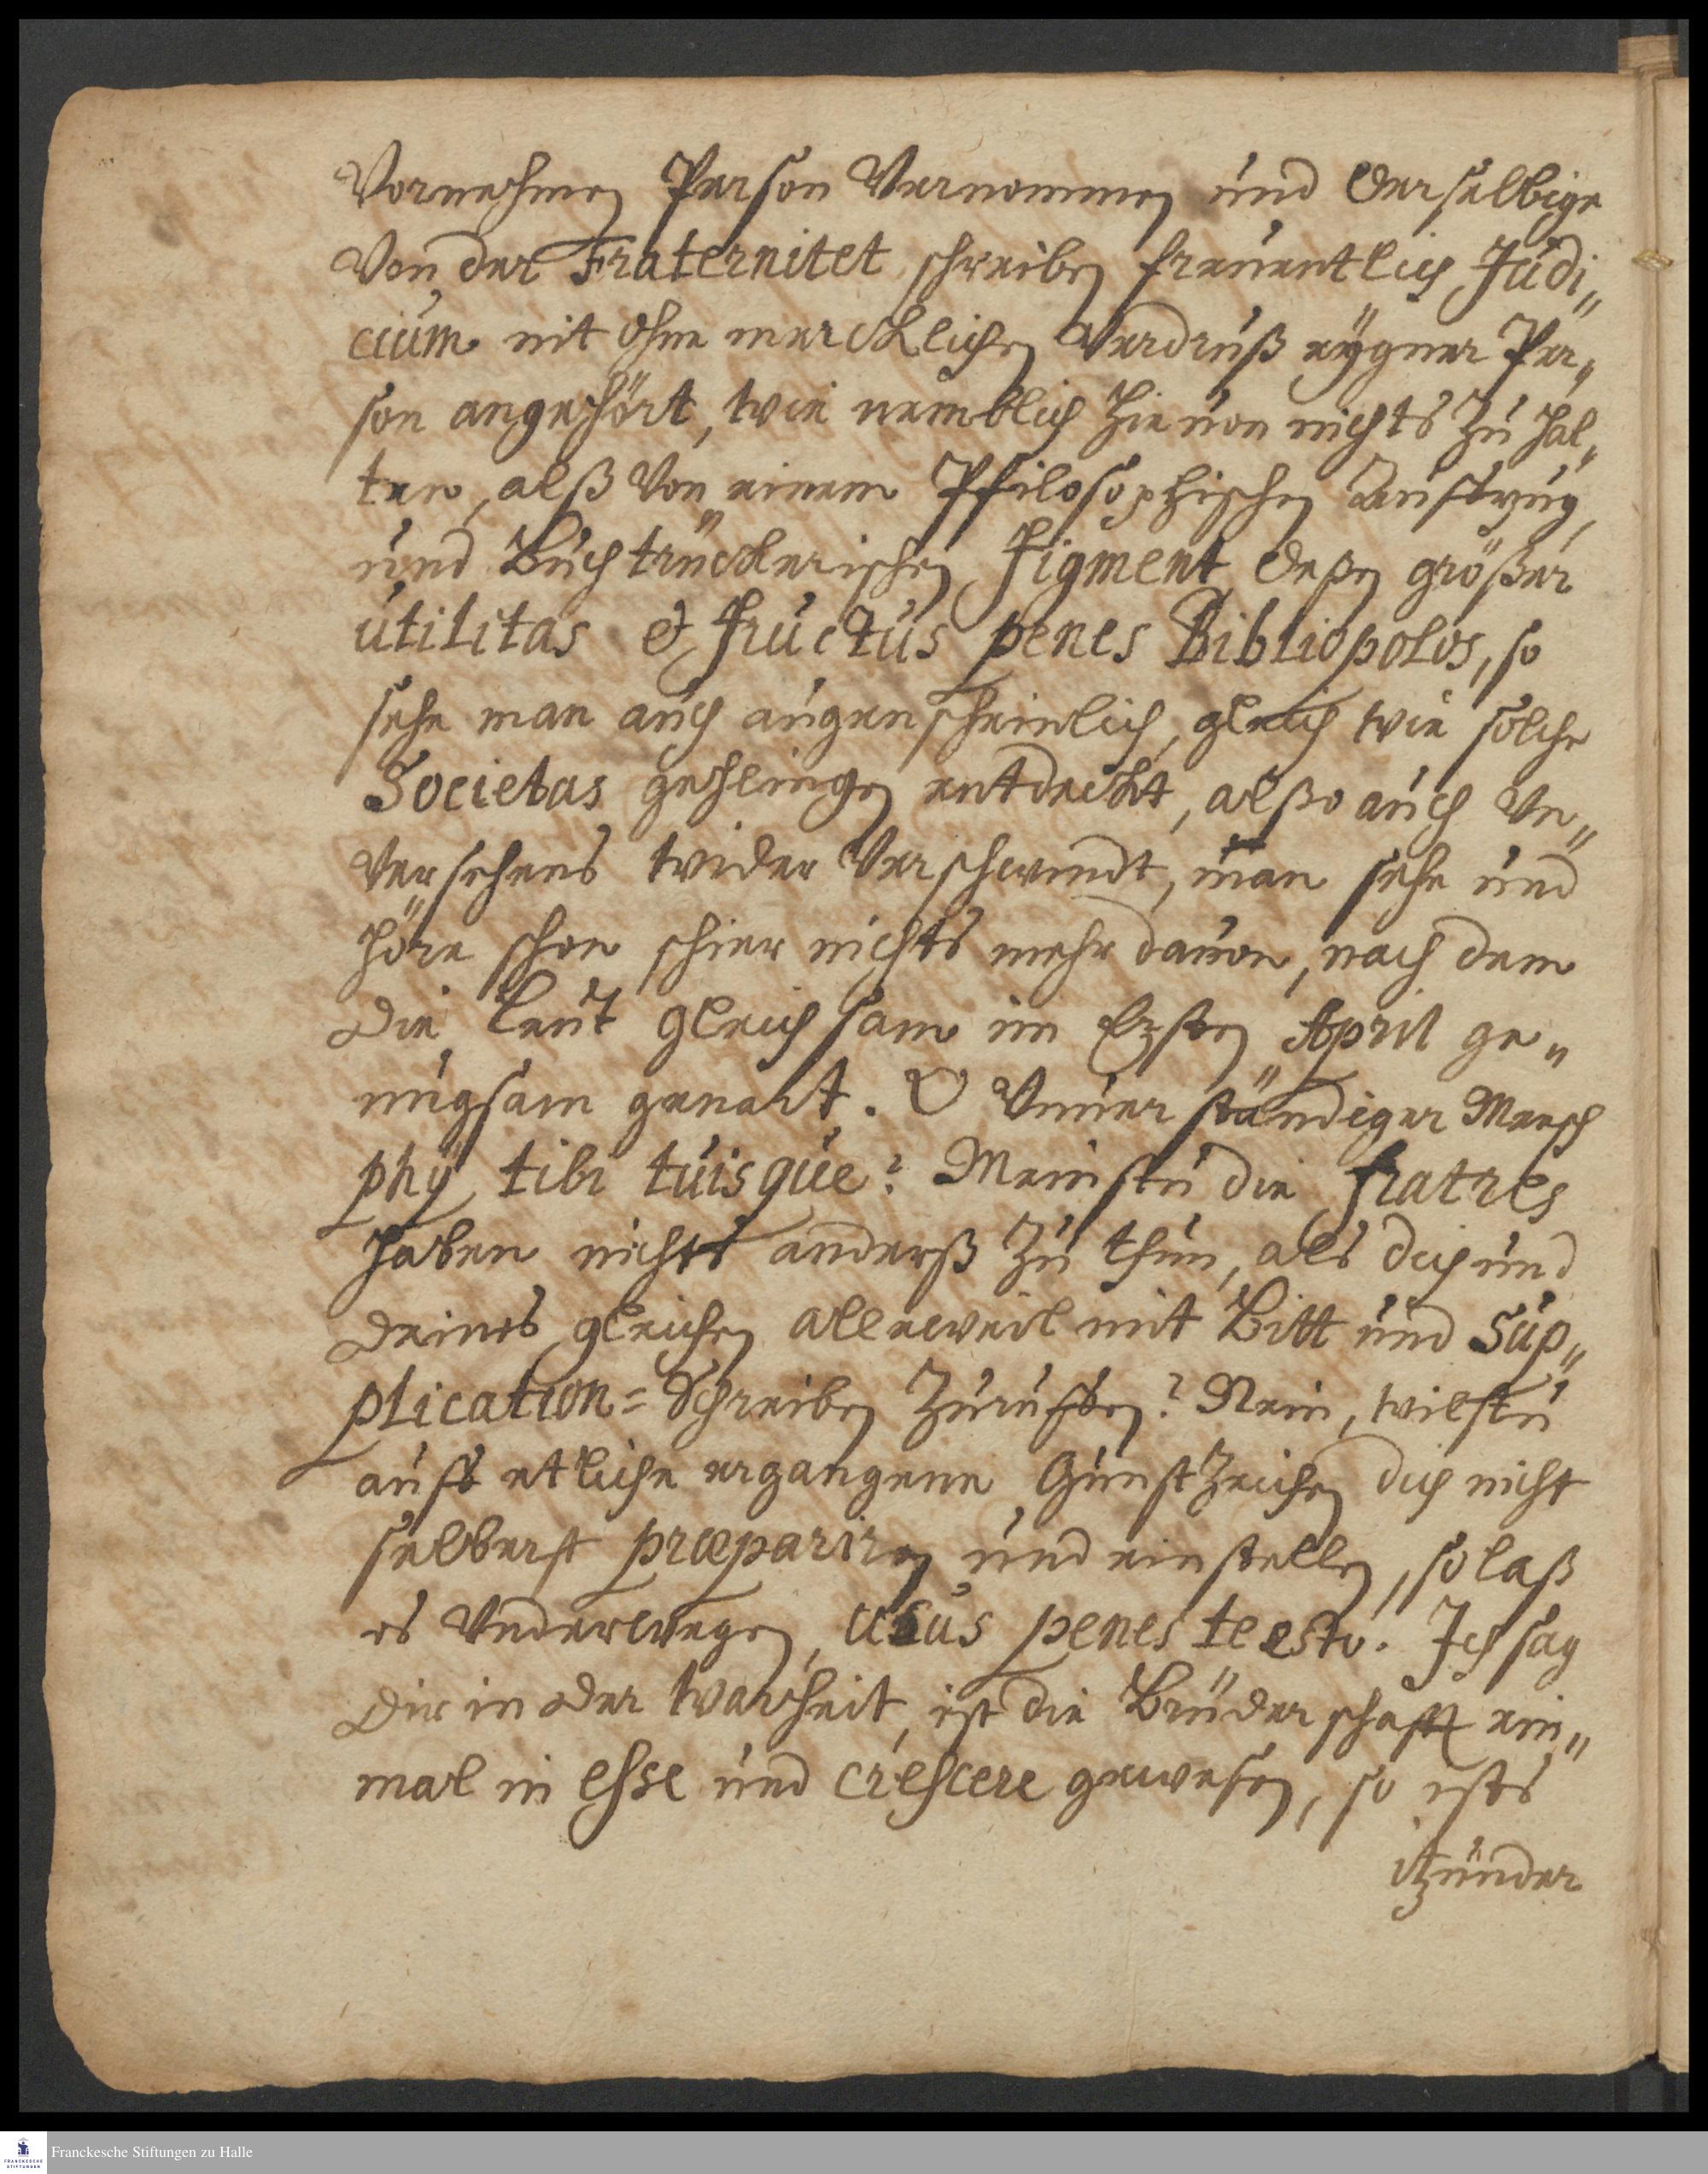 Vornehmen Person Vernommen und derselbige
Von der Fraternitet schreiben freuentlich Judi„
cium nit ohne mercklichen Verdruß eÿgner Per„
son angehört, wie nemblich hieuon nichts zu hal„
ten, alß Von einem Philosophischen Aufzug,
und Buchtruckerischen Figment deßen größer
utilitas & fructus penes Bibliopolos, so
sehe man auch augenscheinlich, gleich wie solche
Societas gehlingen entdeckt, alßo auch Vn„
Versehens wider Verschwindt, man sehe und
höre schon schier nichts mehr dauon, nach dem
die Leut gleichsam im Ersten April ge„
nugsam genart. O Vnuerständiger Mensch
phÿ tibi tuisque? Meinstu die fratres
haben nichts anderß zu thun, als dich und
deines gleichen allerweil mit Bitt und Sup„
plication=Schreiben Zuruffen? Nein, wilstu
auff etliche ergangene Gunst Zeichen dich nicht
selberst præpariren und einstellen, so laß
es Vnderwegen, usus penes te esto. Ich sag
dir in der Warheit, ist die Brüderschafft ein„
mal in esse und crescere gewesen, so ists
itzunder
Franckesche Stiftungen zu Halle